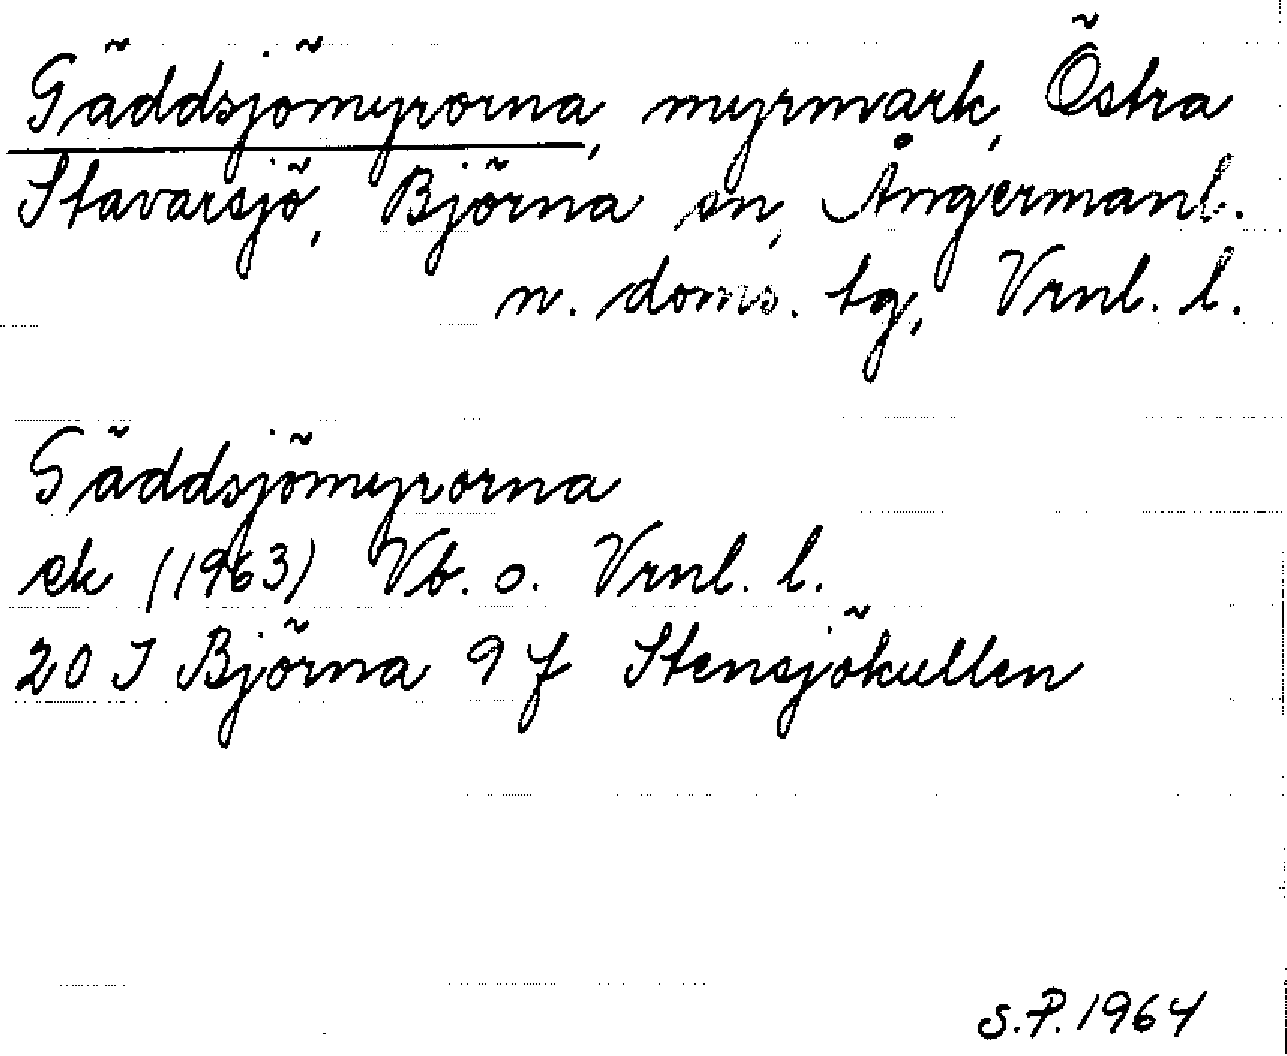 Gäddsjömyrorna, myrmark, Östra
Stavarsjö, Björna sn, Ångermanl.
n. doms. tg, Vrnl. l.
Gäddsjömyrorna
ek (1963) Vb. o. Vrnl. l.
20 J Björna 9 f Stensjökullen
S.P. 1964